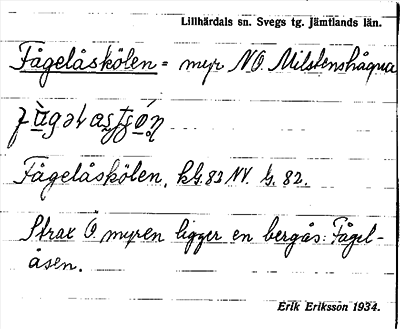 Lillhärdals sn. Svegs tg. Jämtlands län.
Fågelåskölen = myr NO. Milstenshågna
Fågelåskölen, kG.83 NV. G. 82.
Strax Ö myren ligger en bergås: Fågel-
åsen.
Erik Eriksson 1934.